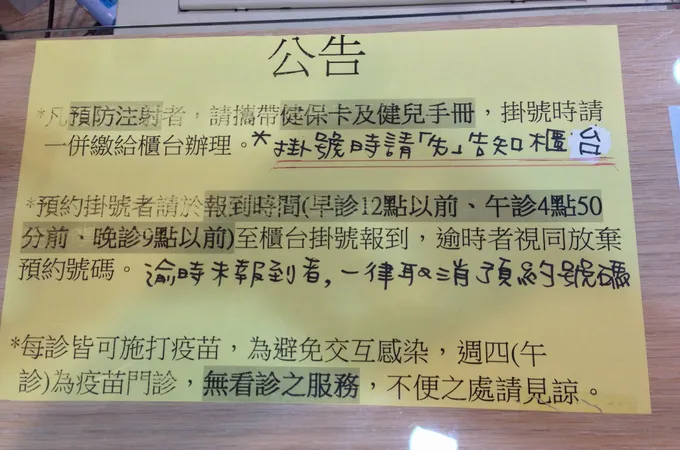 公告
*凡預防注射者，請攜帶健保卡及健兒手冊，掛號時請
一併繳給櫃台辦理。*掛號時請「先」告知櫃台
*預約掛號者請於報到時間(早診12點以前、午診4點50
分前、晚診9點以前)至櫃台掛號報到，逾時者視同放棄
預約號碼。逾時未報到者,一律取消預約號碼
*每診皆可施打疫苗，為避免交互感染，週四(午
診)為疫苗門診，無看診之服務，不便之處請見諒。